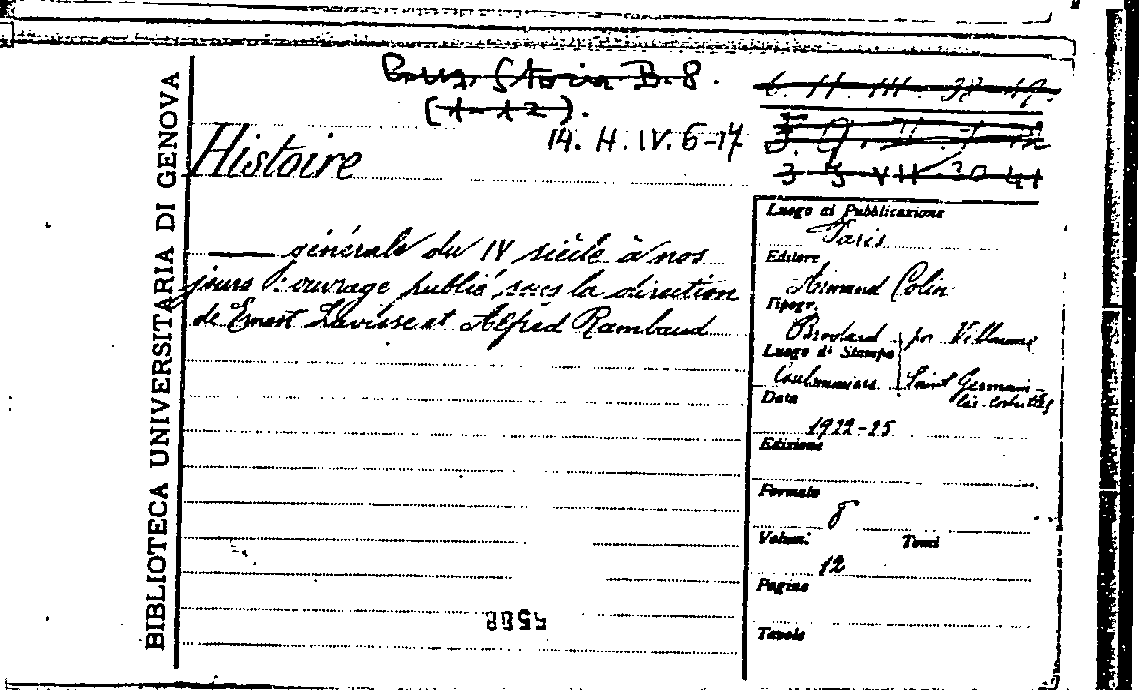 BIBLIOTECA UNIVERSITARIA DI GENOVA
Storia B. 8.
(1-12).
14. H. IV. 6-17
Histoire
générale du IV siècle à nos
jours: ouvrage publié sous la direction
de Ernest Lavisse et Alfred Rambaud
Luogo di Pubblicazione
Paris
Editore
Armand Colin
Tipogr.
Brodard
Luogo di Stampa
Coulommiers Saint Germain-
Data
1922-25
Edizione
Formato
8
Volumi Tomi
12
Pagine
Tavole